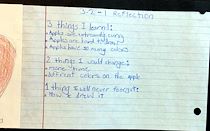 3-2-1 Reflection
3 things I learned:
• Apples are
• Apples are hard to draw
• Apples have so many colors
2 things I would change:
• more time
• different colors on the apple
1 thing I will never forget:
• How to draw it